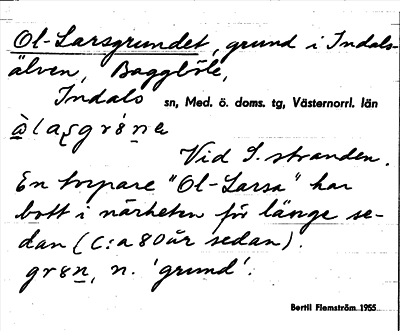 Ol-Larsgrundet, grund i Indals-
älven, Baggböle,
Indals sn, Med. ö. doms. tg, Västernorrl. län
Vid S. stranden.
En torpare "Ol-Larsa" har
bott i närheten för länge se-
dan (C:a 80 år sedan).
grɵn, n. 'grund'.
Bertil Flemström 1955